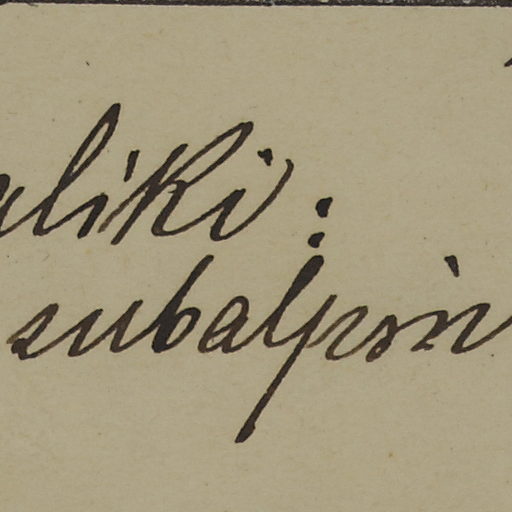 uliki:
subalpin